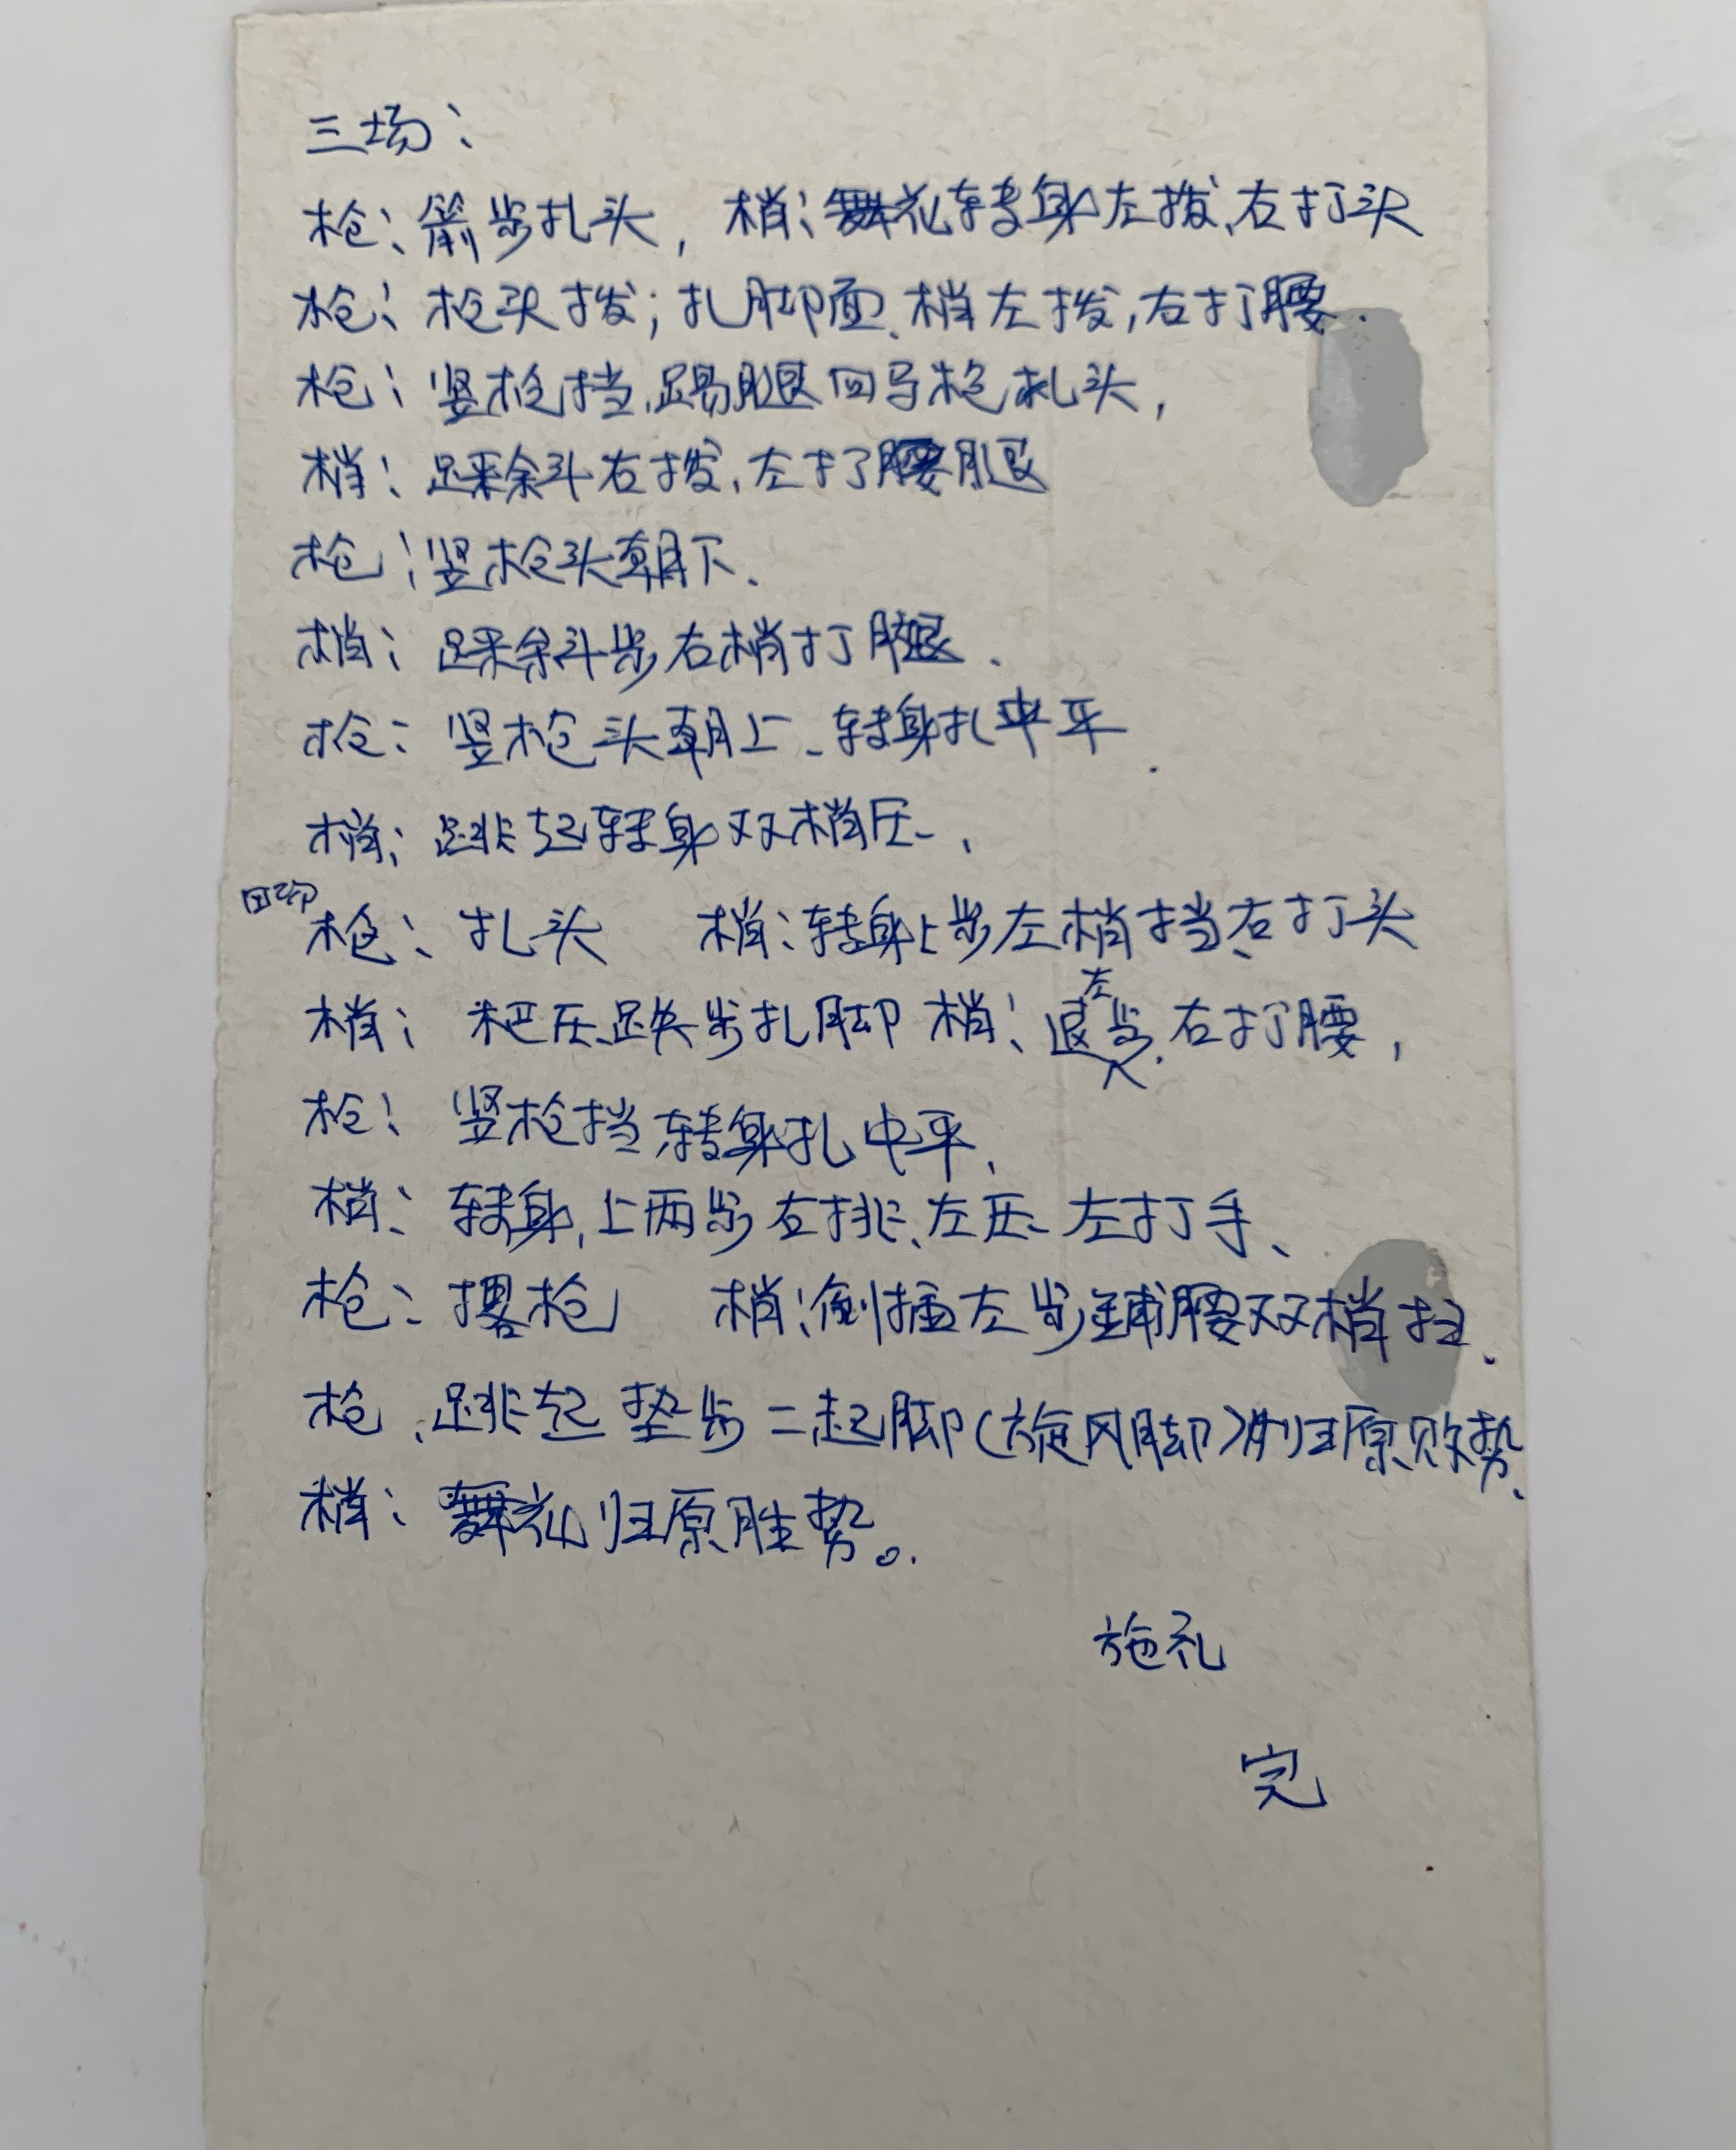 三场：
枪：箭步扎头，梢：舞花转身左拨、右打头
枪：枪头拨；扎脚面、梢左拨，右打腰.
枪：竖枪挡，踢腿回马枪扎头，
梢：踩余斗右拨，左打腿
枪：竖枪头朝下.
梢：踩余斗步右梢打腿.
枪：竖枪头朝上、转身扎中平.
梢：跳起转身双梢压、
枪：扎头 梢：转身上步左梢挡、右打头
梢：把压跌步扎脚 梢：退左步.右打腰，
枪：竖枪挡转身扎中平、
梢：转身，上两步右挑、左压、左打手、
枪：撂枪 梢：倒插左步铺腰双梢扫、
枪、跳起垫步二起脚（旋风脚）归原败势、
梢：舞花归原胜势。
施礼
完